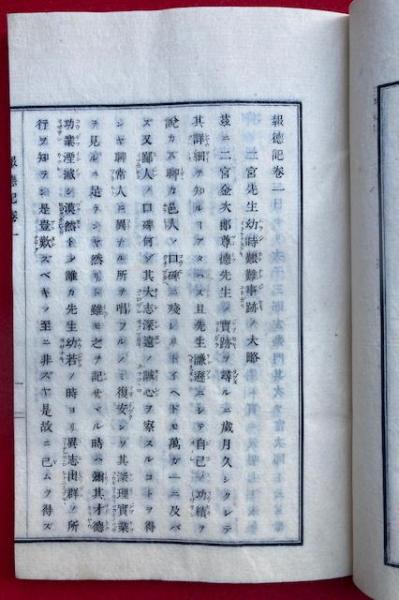 報德記卷一
二宮先生幼時艱難事跡ノ大略
茲ニ二宮金次郎尊德先生ノ實跡ヲ尋ルニ歲月久シクシテ
其詳細ヲ知ルコアタハズ且先生謙遜ニシテ自己ノ功績ヲ
說カズ聊カ邑人ノ口碑ニ殘レリトイヘドモ萬カ一ニ及バ
ズ又鄙人ノ口碑何ゾ其大志深遠ノ誠心ヲ察スルコトヲ得
ンヤ聊常人ニ異ナル所ヲ唱フルノミ復安ンゾ其深理實業
ヲ見ルニ足ランヤ然リト雖モ之ヲ記サヾル時ハ彌其才德
功業湮滅シ漠然トシ誰カ先生幼若ノ時ヨリ異志出群ノ所
行ヲ知ラン是豈歎ズベキノ至ニ非ズヤ是故ニ已ムヲ得ズ
報德記卷一